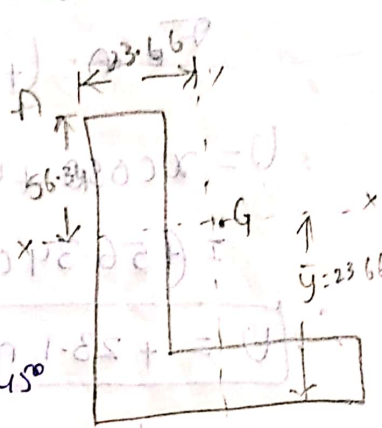 23.66
A
56.34
x
G
x
ȳ=2366
45°